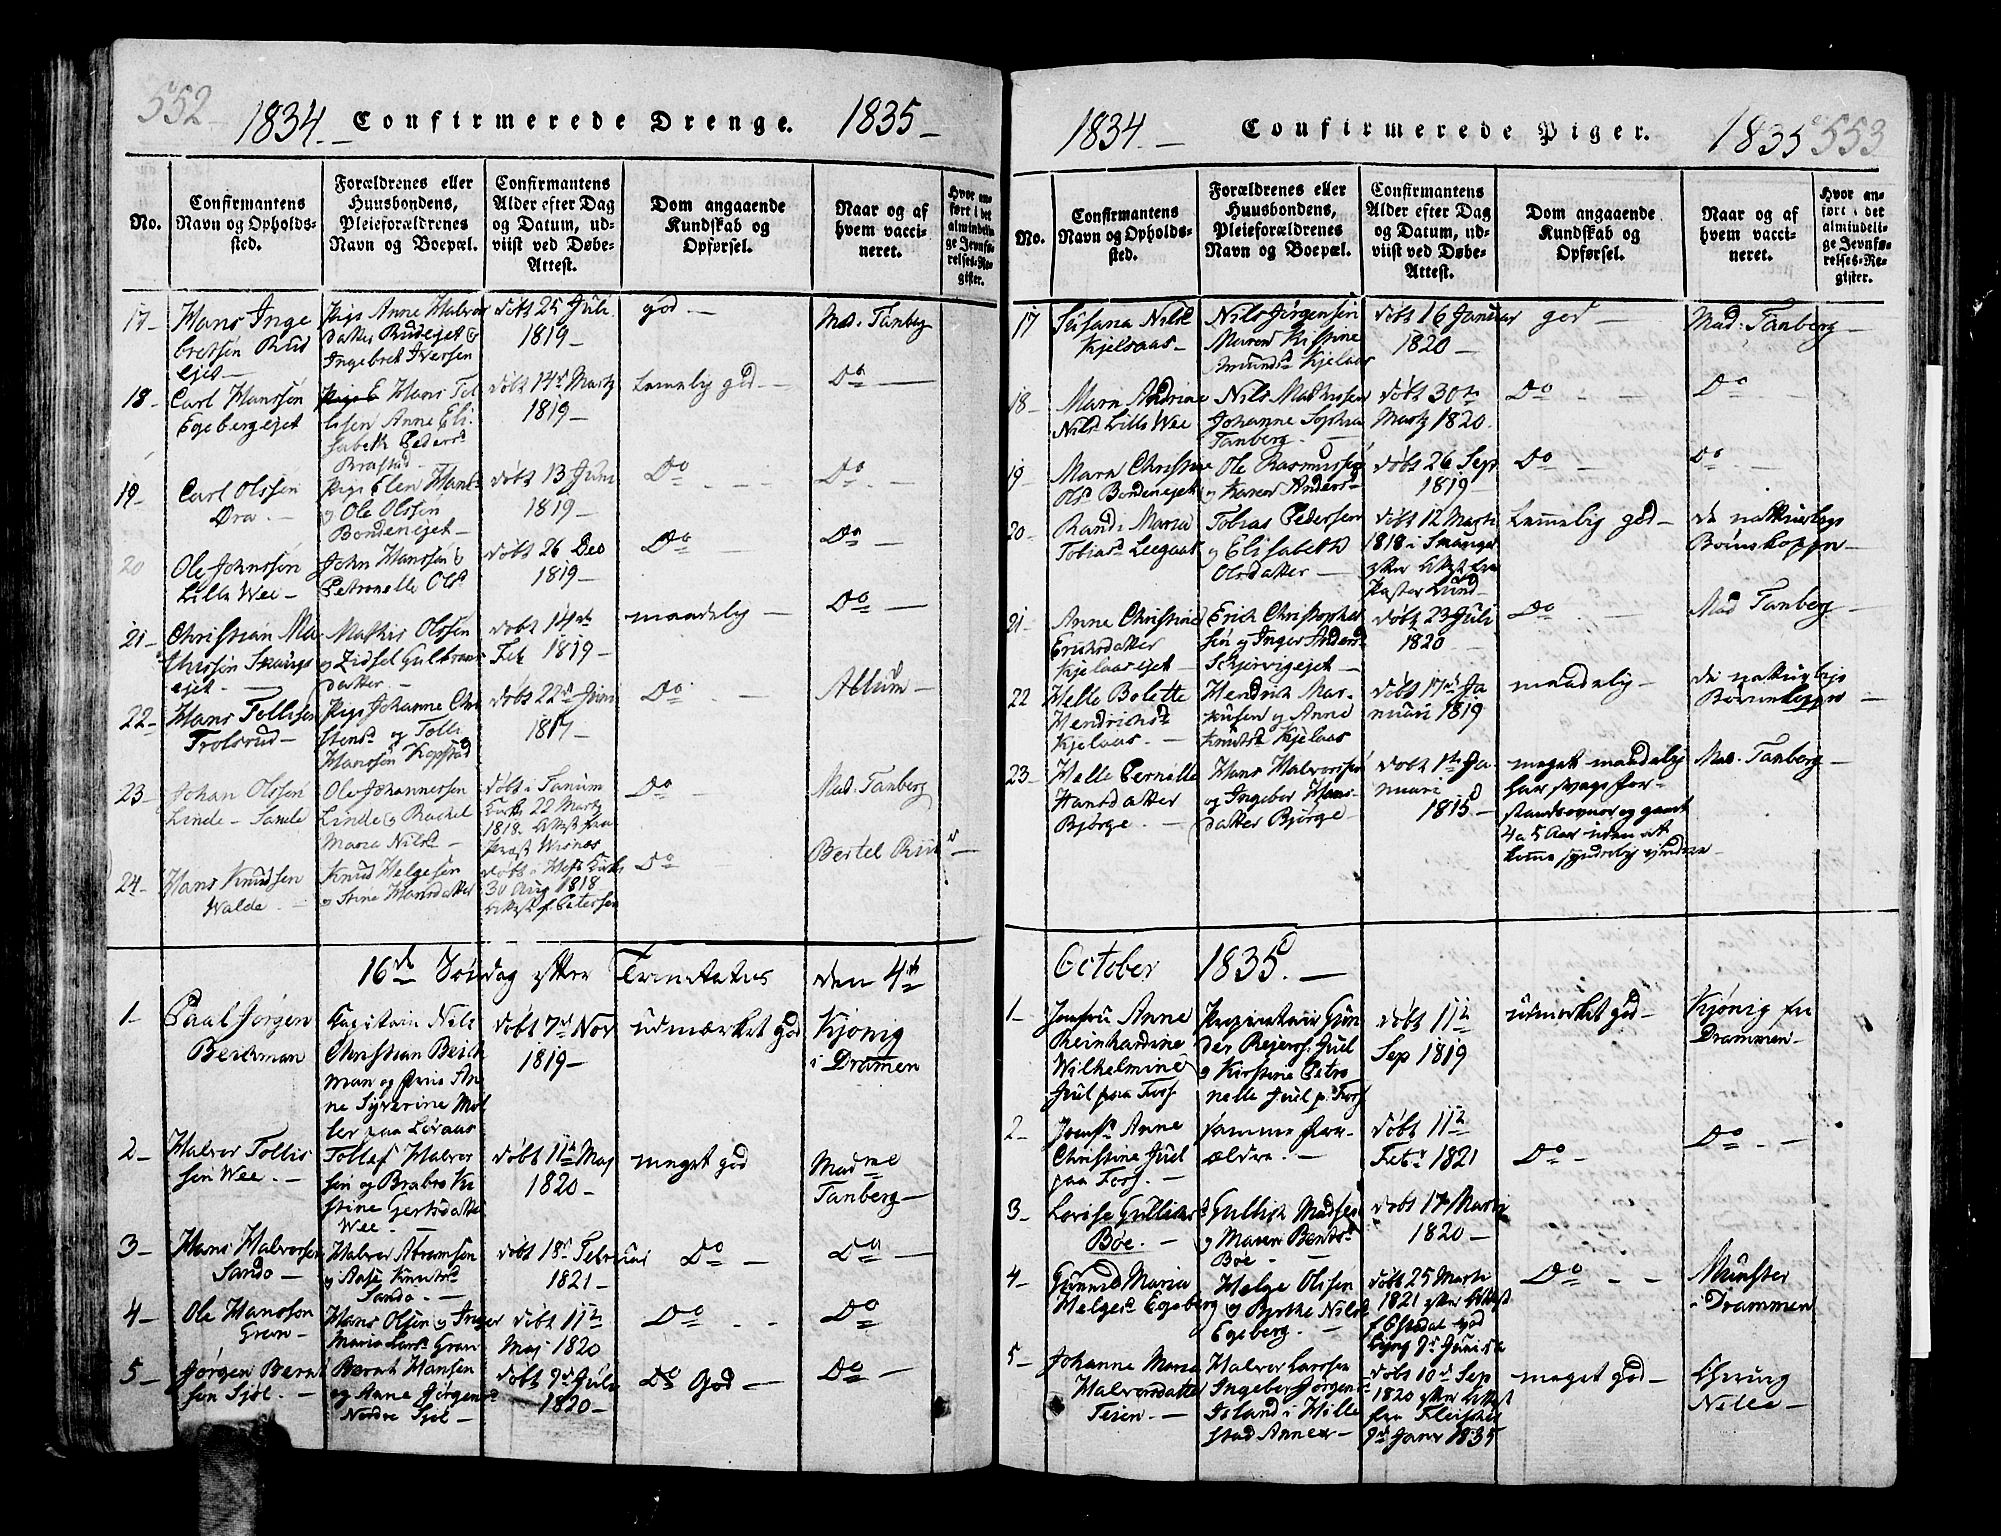 552
1834 Confirmerede Drenge. 1835
No.
Confirmantens
Navn og Opholds-
sted.
Forældrenes eller
Huusbondens,
Pleieforældrenes
Navn og Boepæl.
Confirmantens
Alder efter Dag
og Datum, ud-
viist ved Døbe-
Attest.
Dom angaaende
Kundskab og
Opførsel.
Naar og af
hvem vacci-
neret.
Hvor an-
ført i det
almindeli-
ge Jevnfø-
relses-Re-
gister.
17 -
Hans Inge
bretsen Rud
ejet -
Pige Anne Halvors
datter Rudejet &
Ingebret Iversen
døbt 25 Juli
1819 -
god. -
Mad. Tanberg
18 -
Carl Hanssen
Egebergejet
Hans Tol
lisen Anne Eli
sabeth Peders
Brastad -
døbt 14d Martz
1819 -
temelig god -
Do -
19 -
Carl Olssen
Dra. -
Pige Elen Hans
og Ole Olssen
Bondenejet -
døbt 13 Juni
1819 -
Do -
Do -
20
Ole Johnssen
Lille Wee -
John Hanssen &
Petronelle Ols
døbt 26 Dec
1819 -
Do -
Do -
21 -
Christian Ma
thissen Skaugs
ejet. -
Mathis Olssen
og Zidsel Gulbrans
datter -
døbt 14de
Feb 1819 -
maadelig -
Do -
22 -
Hans Tollissen
Trolsrud -
Pige Johanne Chri
stens og Tolli
Hanssen Kopstad
døbt 22d Juni
1817 -
Do -
Ablum -
23 -
Johan Olssen
Linde - Sande
Ole Johannersen
Linde & Rachel
Maria Nils -
døbt i Tanum
Kirke 22 Martz
1818. Attest fra
Præst Wisnæs
Do -
Mad. Tanberg
24 -
Hans Knudsen
Walde. -
Knud Helgesen
og Stine Hansdatter
døbt i Hofs Kirke
30 Aug 1818
Attest f. Petersen
Do -
Bertel
16de Søndag efter Trinitatis den 4de
1 -
Paal Jørgen
Beichman
Capitain Nils
Christian Beich
man og Frue An
ne Syverine Møl
ler paa Løraas
døbt 7d Nov
1819 -
udmærket god
Kjønig
i Dramen
2 -
Halvor Tollis
sen Wee. -
Tollef Halvor
sen og Brabro Ki
stine Gertsdatter
Wee -
døbt 11te Maj
1820 -
meget god
Madme
Tanberg -
3 -
Hans Halvorsen
Sando -
Halvor Abramsen
og Aase Knuts
Sando -
døbt 18d Februar
1821 -
Do
Do -
4 -
Ole Hanssen
Gran -
Hans Olsen og Inger
Maria Lars Gran
døbt 11te
Maj 1820
Do -
Do
5 -
Jørgen Bernt
sen Sjøl. -
Bernt Hansen
og Anne Jørgens
Nordre Sjøl -
døbt 9d Juli
1820 -
Do God -
Do -
1834 - Confirmerede Piger. 1835 553
No.
Confirmantens
Navn og Opholds-
sted.
Forældrenes eller
Huusbondens,
Pleieforældrenes
Navn og Boepæl.
Confirmantens
Alder efter Dag
og Datum, ud-
viist ved Døbe-
Attest.
Dom angaaende
Kundskab og
Opførsel.
Naar og af
hvem vacci-
neret.
Hvor an-
ført i det
almindeli-
ge Jevnfø-
relses-Re-
gister.
17
Susana Nils
Kjelsaas -
Nils Jørgensen
Maren Kistine
Amunds Kjelaas
døbt 16 Januar
1820 -
god -
Mad: Tanberg -
18
Maren Andrine
Nils Lille Wee
Nils Mathissen
Johanne Sophia
Tanberg. -
døbt 30te
Martz 1820.
Do -
Do -
19
Maren Christine
Ols Bondenejet
Ole Rasmussen
og Karen Anders
døbt 26 Sep
1819 -
Do -
Do -
20
Randi Maria
Tobias Leegaas
Tobias Pedersen
og Elisabeth
Olsdatter -
døbt 12 Marti
1818 i Skauger
efter Attest fra
Pastor Lund -
temelig god -
de naturlige
Børnekopper -
21
Anne Christine
Erichsdatter
Kjelaasejet -
Erich Christopher
sen og Inger Anders
Schjervigejet -
døbt 23 Juli
1820 -
Do
Mad Tanberg -
22
Helle Bolette
Hendrichs
Kjelaas. -
Hendrich Mar
kusen og Anne
Knuts Kjelaas
døbt 17d Ja
nuari 1819
maadelig -
de naturlige
Børnekopper -
23
Helle Pernelle
Hansdatter
Bjørge. -
Hans Halvorssen
og Ingebor Hans
datter Bjørge -
døbt 1te Ja
nuari
1815 -
meget maadelig
har svage For
standsevner og gaaet
4 a 5 Aar uden at
Mad. Tanberg -
October 1835. -
1 -
Jomfru Anne
Reinhardine
Wilhelmine
Juul paa Foss
Proprietair Gun
der Rejers. Juul
og Kirstine Petro
nelle Juul p. Foss
døbt 11te
Sep 1819
udmærket god -
Kjønig fra
Drammen -
2 -
Jomf. Anne
Christine Juul
paa Foss. -
samme For
ældre. -
døbt 11te
Febr 1821
Do -
Do -
3 -
Lovise Gullichs
Bøe. -
Gullich Madsen
og Maren Bents
Bøe -
døbt 17 Marti
1820 -
4 -
Gunnild Maria
Helges Egeberg
Helge Olssen
og Byrthe Nils
Egeberg. -
døbt 25 Marti
1821 efter Attest
Do -
Munster
i Drammen
5 -
Johanne Maria
Halvorsdatter
Teien. -
Halvor Larssen
Ingebor Jørgens
Island i Hille
stad Annex -
døbt 10d Sep
1820 efter Attest
fra Fleischer
9d Janr 1835
meget god -